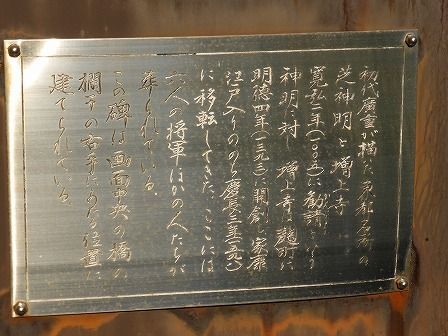 初代廣重が描いた東都名所の
芝神明と増上寺
寛弘二年(一〇〇五)に勧請という
神明に対し 増上寺は麹町に
明徳四年(一三九三)に開創し家康
江戸入りののち慶長三年(一五九八)
に移転してきた。ここには
六人の将軍ほかの人たちが
葬られている。
この碑は画面中央の橋の
欄干の右手にあたる位置に
建てられている。